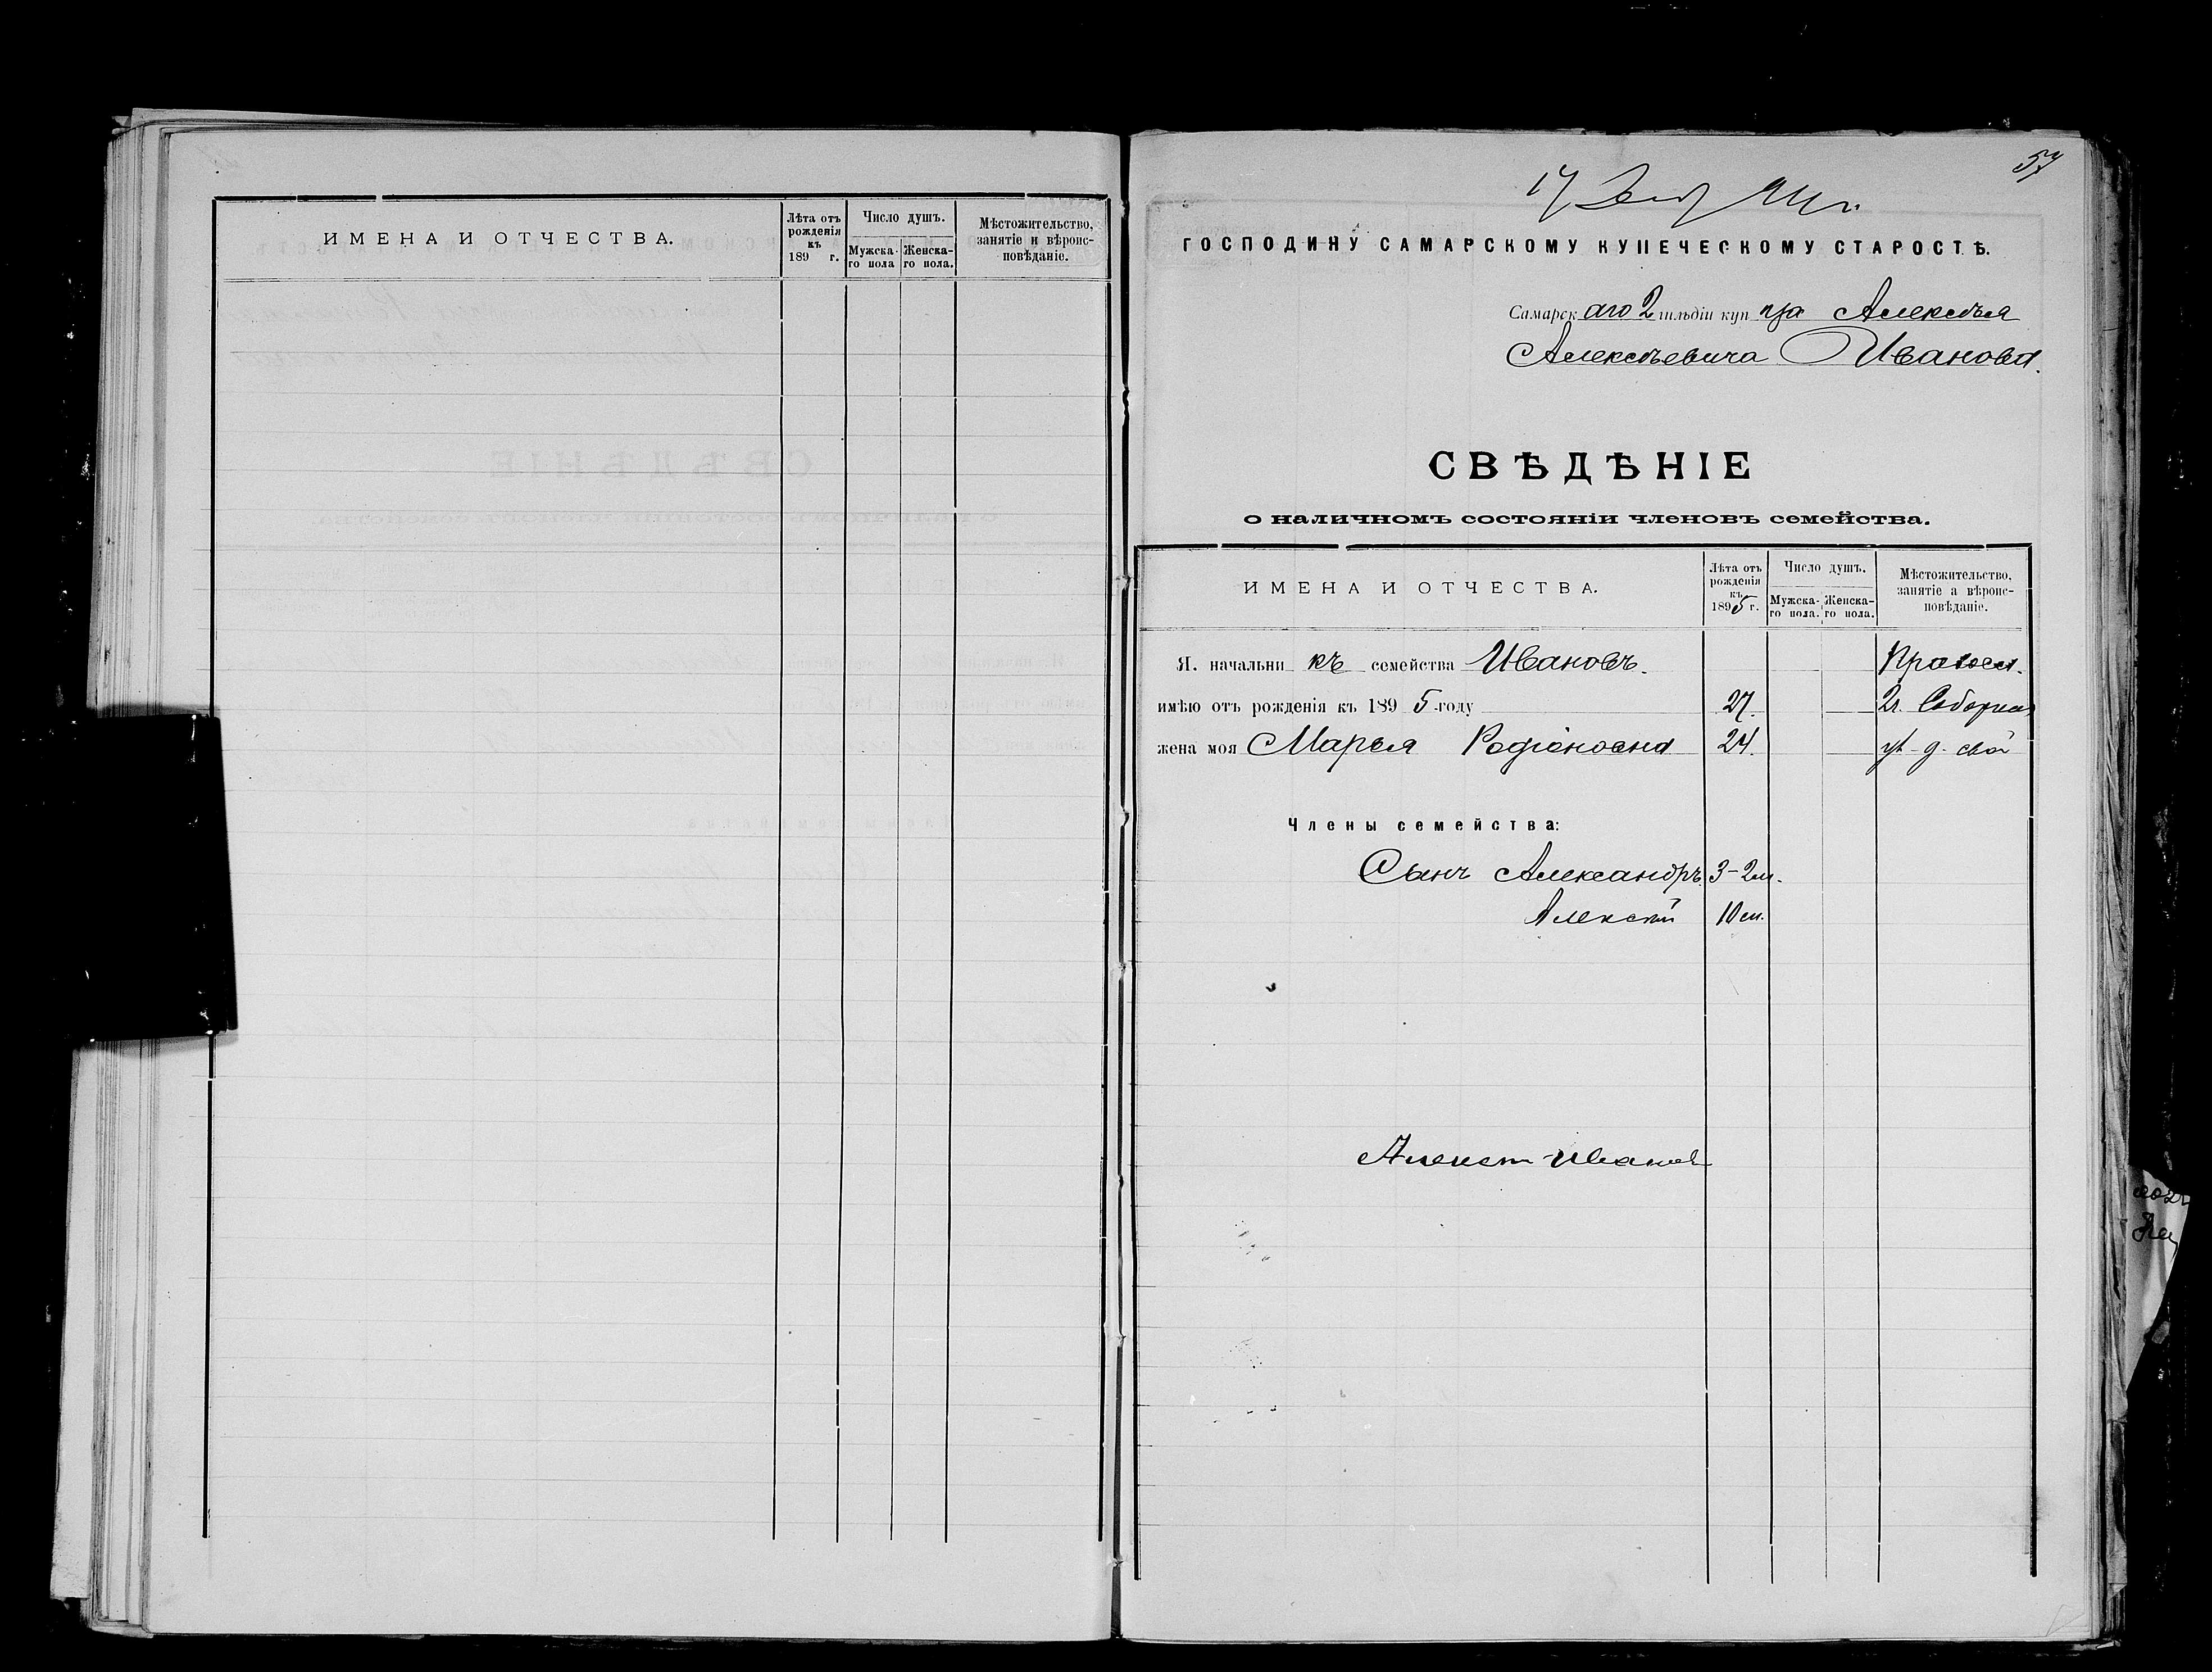 ИМЕНА И ОТЧЕСТВА.
Лѣта отъ рожденія къ 189 г.
Число душъ.
Мужска-го пола
Женска-го пола.
Мѣстожительство, занятіе и вѣроис-повѣданіе.
57
17
ГОСПОДИНУ САМАРСКОМУ КУПЕЧЕСКОМУ СТАРОСТѢ.
Самарскаго 2 гильдіи купца Алексѣя
Алексѣевича Иванова.
СВѢДѢНІЕ
о наличномъ состояніи членовъ семейства.
ИМЕНА И ОТЧЕСТВА.
Лѣта отъ рожденія къ 1895 г.
Число душъ.
Мужска-го пола.
Женска-го пола.
Мѣстожительство, занятіе а вѣроис-повѣданіе.
Я. начальникъ семейства Ивановъ. Правосл.
имѣю отъ рожденія къ 1895 году 27. Соборная
жена моя Марья Родіоновна 24. д. свой
Члены семейства:
Сынъ Александръ 3-2м.
Алексѣй 10 м.
Алексѣй Ивановъ